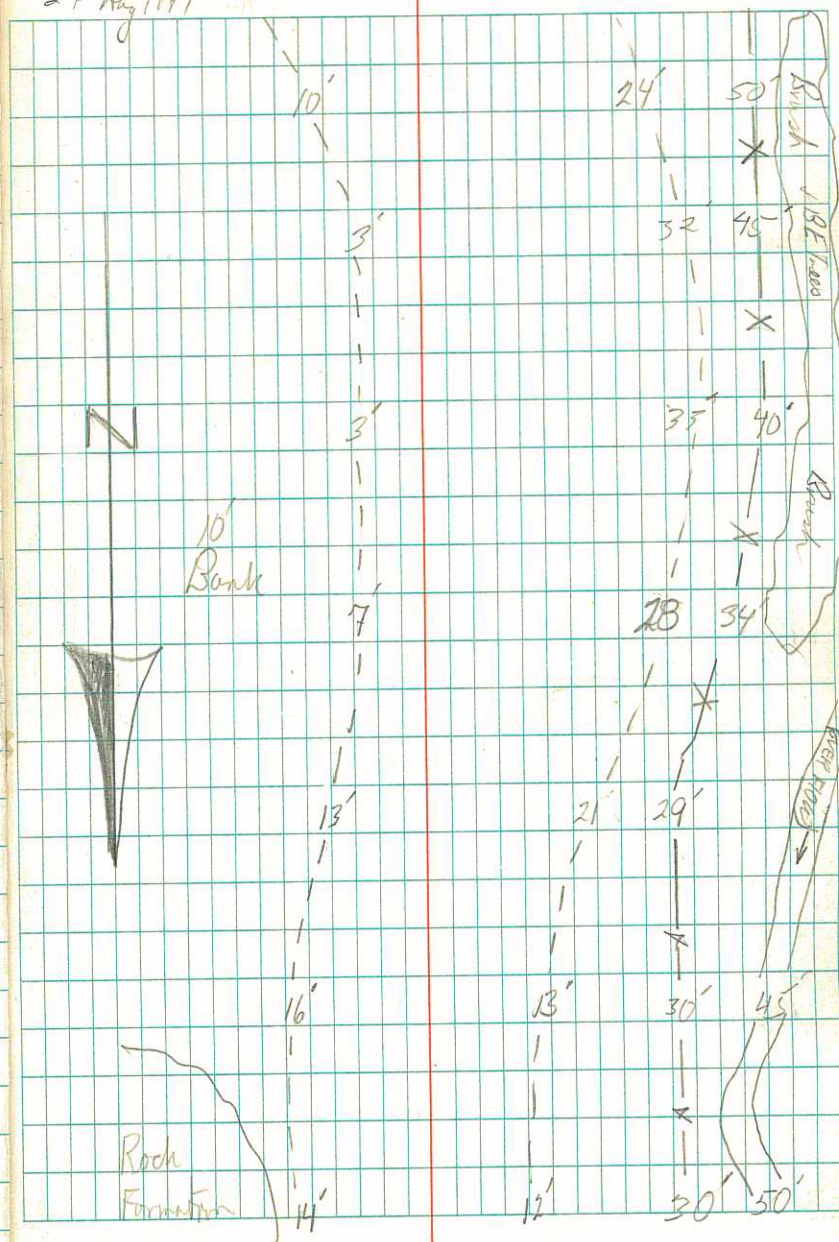 10' 24' 50'
Brush
Trees
3' 32' 45'
N
3' 35' 40'
Brush
10'
Bank
7' 28 34'
over Flow
13' 21' 29'
16' 13' 30' 45'
Rock
Formation
14' 12' 30' 50'